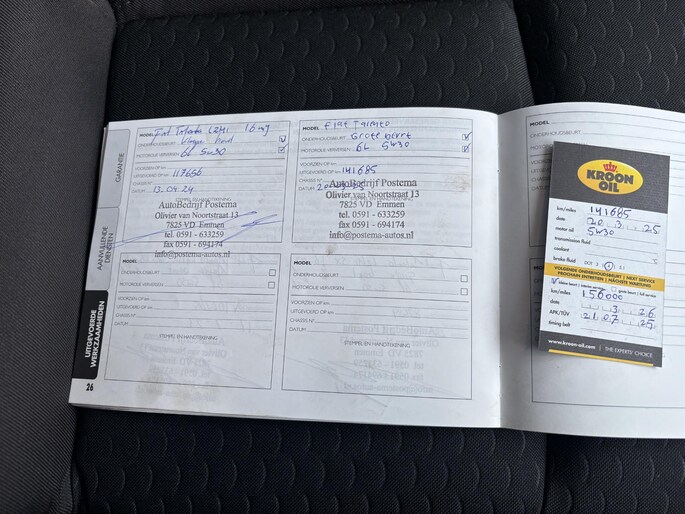 GARANTIE
AANVULLENDE
DIENSTEN
UITGEVOERDE
WERKZAAMHEDEN
26
MODEL Fiat
ONDERHOUDSBEURT
MOTOROLIE VERVERSEN 6L 5W30
VOORZIEN OP km
UITGEVOERD OP km 117656
CHASSIS N°
DATUM 13.04.24
STEMPEL EN HANDTEKENING
AutoBedrijf Postema
Olivier van Noortstraat 13
7825 VD Emmen
tel. 0591 - 633259
fax 0591 - 694174
info@postema-autos.nl
MODEL Fiat
ONDERHOUDSBEURT Grote beurt
MOTOROLIE VERVERSEN 6L 5W30
VOORZIEN OP km
UITGEVOERD OP km 141685
CHASSIS N°
DATUM 20
STEMPEL EN HANDTEKENING
AutoBedrijf Postema
Olivier van Noortstraat 13
7825 VD Emmen
tel. 0591 - 633259
fax 0591 - 694174
info@postema-autos.nl
MODEL
ONDERHOUDSBEURT
MOTOROLIE VERVERSEN
VOORZIEN OP km
UITGEVOERD OP km
CHASSIS N°
DATUM
STEMPEL EN HANDTEKENING
MODEL
ONDERHOUDSBEURT
MOTOROLIE VERVERSEN
VOORZIEN OP km
UITGEVOERD OP km
CHASSIS N°
DATUM
STEMPEL EN HANDTEKENING
MODEL
ONDERHOUDSBEURT
KROON
OIL
km/miles 141685
date 20.3.25
motor oil 5W30
transmission fluid
coolant °C
brake fluid DOT 3 4 5.1
VOLGENDE ONDERHOUDSBEURT | NEXT SERVICE
PROCHAIN ENTRETIEN | NÄCHSTE WARTUNG
kleine beurt | interim service grote beurt | full service
km/miles 156000
date 3 26
APK/TÜV 21.07.25
timing belt
www.kroon-oil.com | THE EXPERTS' CHOICE